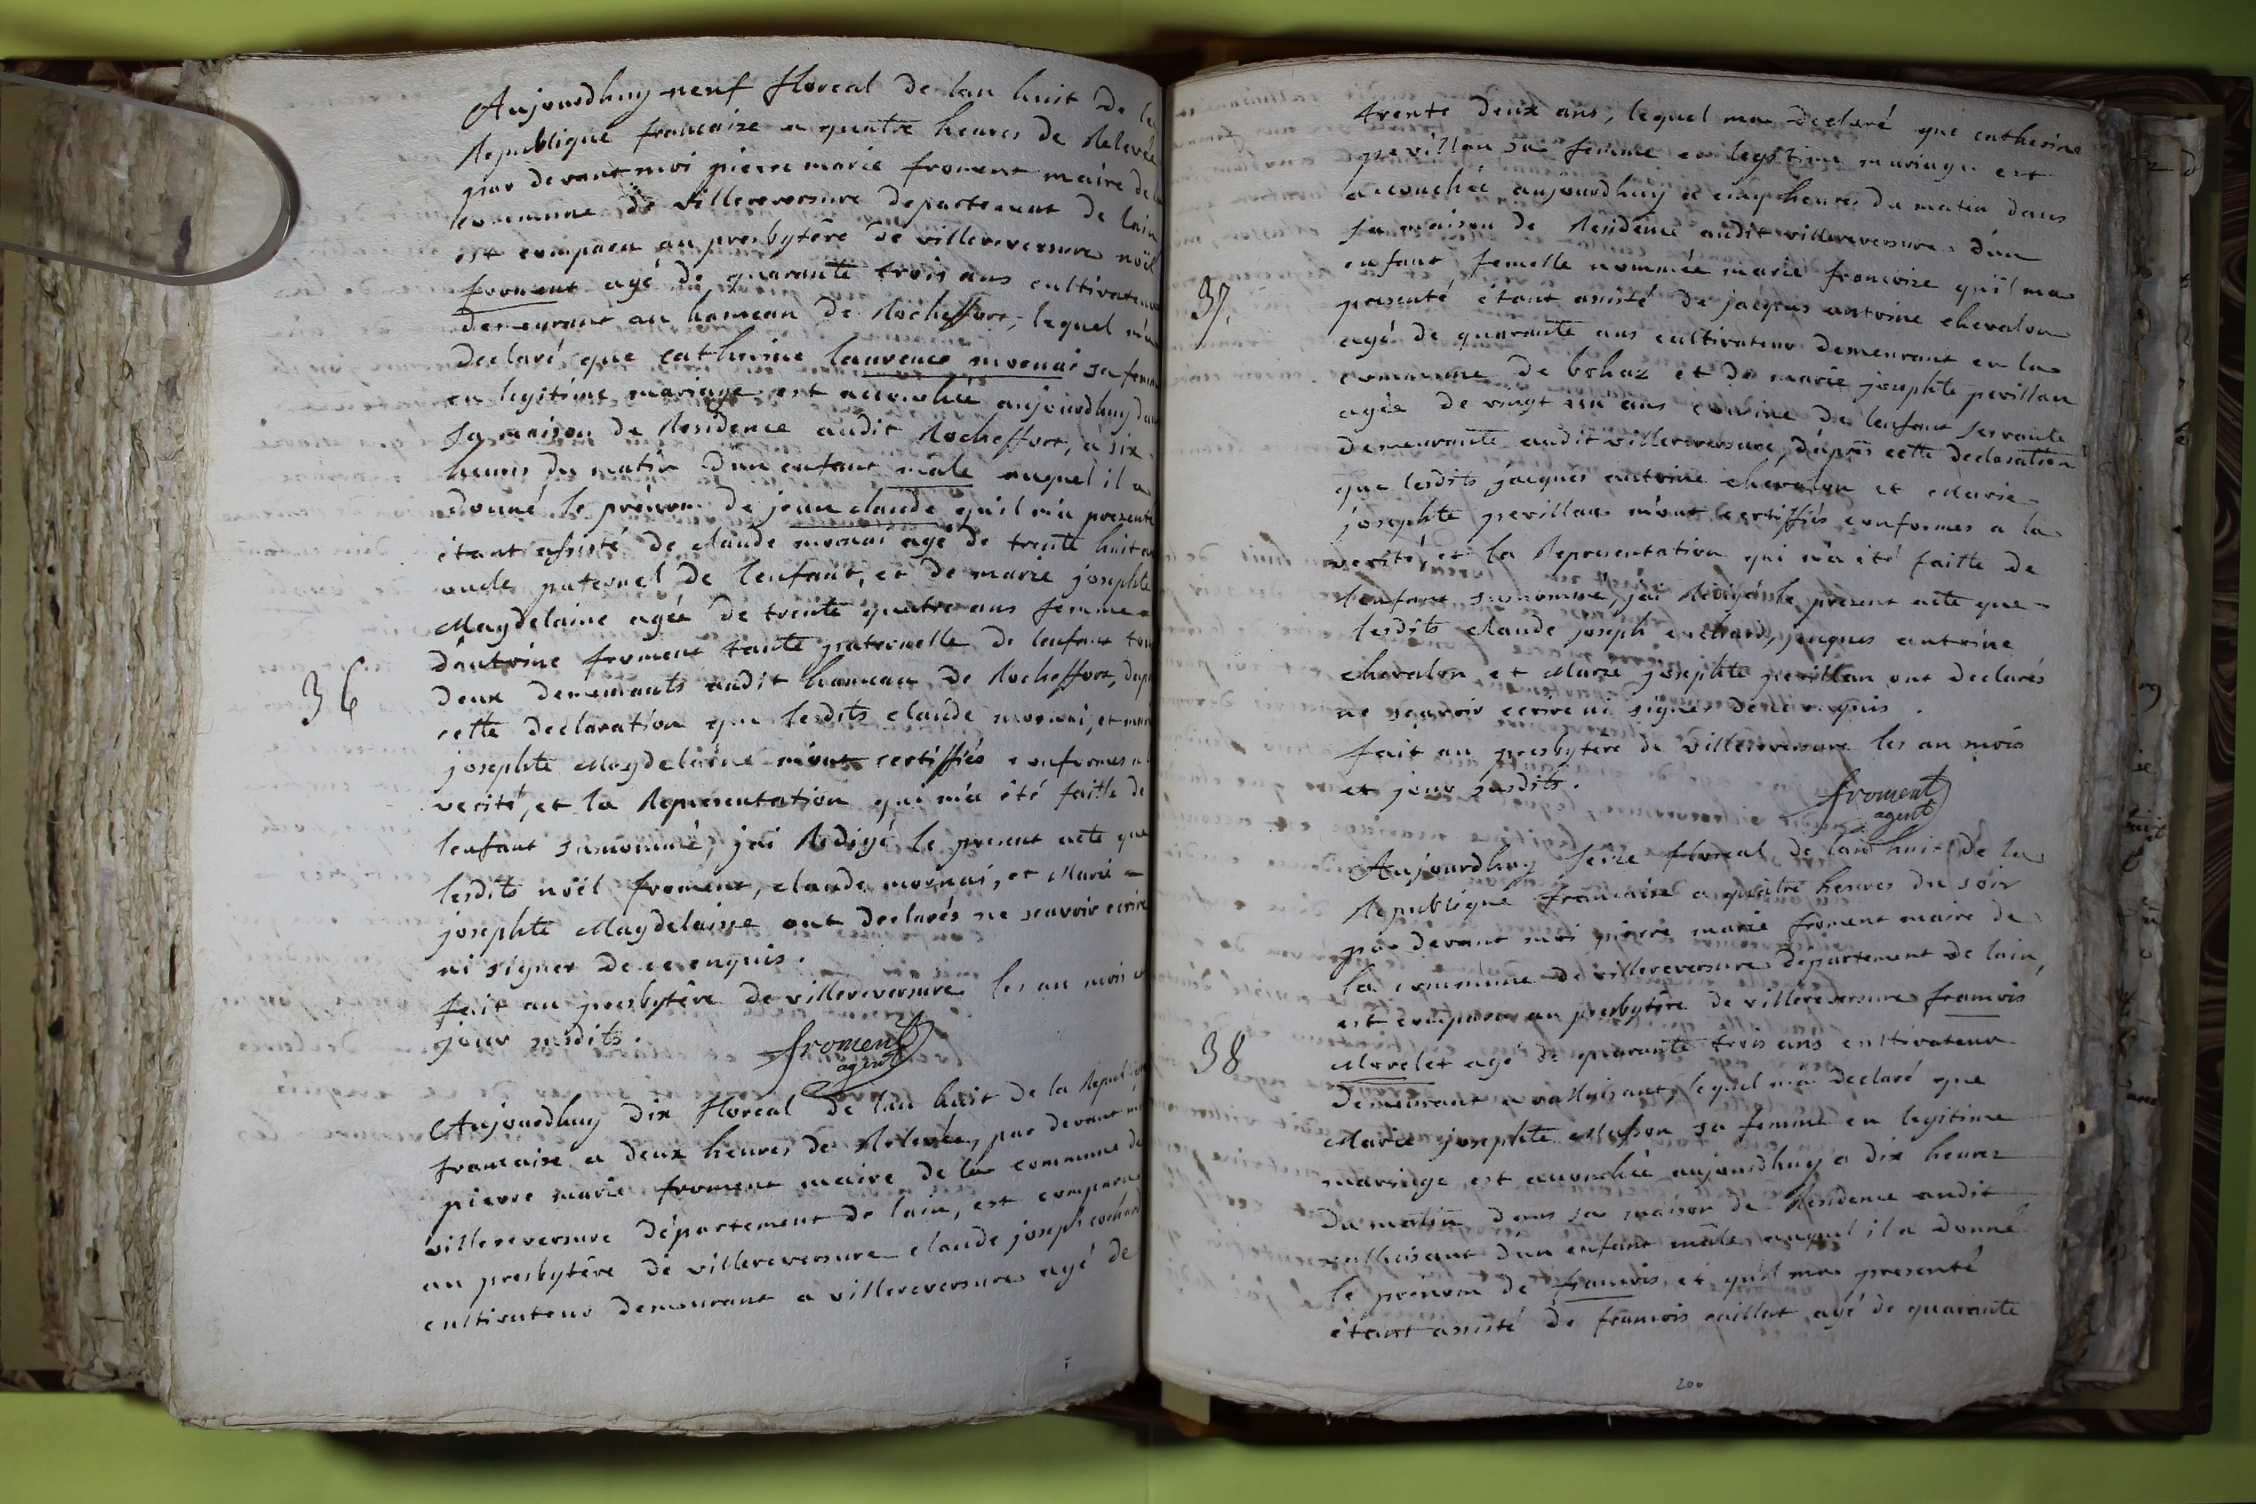 Aujourdhuy neuf floreal de lan huit de la
Republique francaise a quatre heures de Relevée
par devant moi pierre marie froment maire de la
commune de villereversure departement de lain
est comparu au presbytêre de villereversure noël
froment agé de quarante trois ans cultivateur
demeurant au hameau de Rocheffort, lequel m'a
declaré que catherine laurence mornai sa femme
en legitime mariage est accouchée aujourdhuy dans
sa maison de Residence audit Rocheffort, a six
heures du matin dun enfant mâle auquel il a
donné le prénom de jean claude qu'il m'a presenté
êtant assisté de claude mornai agé de trente huit ans
oncle paternel de lenfant, et de marie josephte
Magdelaine agée de trente quatre ans femme
d'antoine froment tante paternelle de lenfant tous
36
deux demeurants audit hameau de Rocheffort, dapres
cette declaration que lesdits claude mornai, et marie
josephte Magdelaine m'ont certiffiés conformes a la
verité, et la Representation qui m'a été faitte de
lenfant surnommé, j'ai Redigé le present acte que
lesdits noël froment, claude mornai, et Marie
josephte Magdelaine ont declarés ne scavoir ecrire
ni signer de ce enquis.
fait au presbytêre de villereversure les an mois et
jour susdits.
froment
agent
Aujourdhuy dix floreal de lan huit de la Republique
francaise a deux heures de Relevée, par devant moi
pierre marie froment maire de la commune de
villereversure département de lain, est comparu
au presbytêre de villereversure claude joseph cochard
cultivateur demeurant a villereversure agé de
trente deux ans, lequel m'a declaré que catherine
pevillan sa femme en legitime mariage est
accouchée aujourdhuy a cinq heures du matin dans
sa maison de Residence audit villereversure d'un
enfant femelle nommée marie francoise qu'il m'a
37.
presenté étant assisté de jacques antoine chevalon
agé de quarante ans cultivateur demeurant en la
commune de bohaz et de marie josephte pevillan
agée de vingt un ans cousine de lenfant servante
demeurante audit villereversure, d'après cette declaration
que lesdits jacques antoine chevalon et Marie
josephte pevillan m'ont certiffiés conformes a la
verité, et la Representation qui m'a été faitte de
lenfant surnommé, j'ai Redigé le present acte que
lesdits claude joseph cochard, jacques antoine
chevalon et Marie josephte pevillan ont declarés
ne scavoir ecrire ni signer de ce enquis.
fait au presbytêre de villereversure les an mois
et jour susdits.
froment
agent
Aujourdhuy seize floreal de lan huit de la
Republique francaise a quatre heures du soir
par devant moi pierre marie froment maire de
la commune de villereversure departement de lain,
est comparu au presbytêre de villereversure francois
38
Morelet agé de quarante trois ans cultivateur
demeurant a valluisant, lequel m'a declaré que
Marie josephte Masson sa femme en legitime
mariage est accouchée aujourdhuy a dix heures
du matin dans sa maison de Residence audit
valluisant d'un enfant mâle auquel il a donné
le prénom de francois, et qu'il m'a presenté
êtant assisté de francois caillat agé de quarante
200